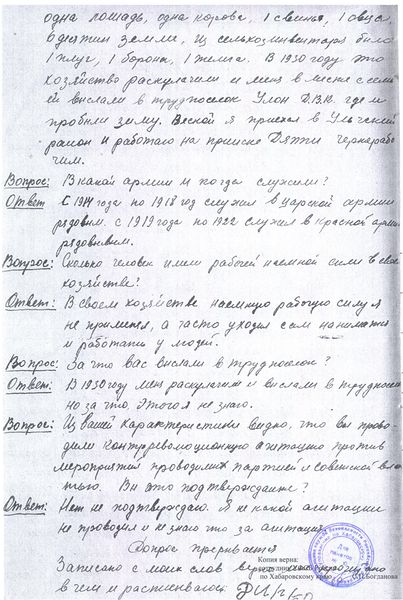 одна лошадь, одна корова, 1 свинья, 1 овца,
земли, Из сельхозинвентаря было
1 плуг, 1 борона, 1 телега. В 1930 году это
хозяйство раскулачили и меня вместе с семь
ей выслали в трудпоселок Улон Д.В.К. где и
пробыли зиму. Весной я приехал в Ульчский
район и работаю на прииске Дяппи чернорабо
чим.
Вопрос: В какой армии и когда служили?
Ответ С 1914 года по 1918 год служил в царской армии
рядовым. с 1919 года по 1922 служил в красной армии
рядовывим.
Вопрос: Сколько человек имели рабочей наемной силы в свое
хозяйстве?
Ответ: В своем хозяйстве наемную рабочую силу я
не применял, а часто уходил сам наниматся
и работать у людей.
Вопрос: За что вас выслали в трудпоселок?
Ответ: В 1930 году меня раскулачили и выслали в трудпоселок
но за что, этого я не знаю.
Вопрос: Из вашей характеристики видно, что вы прово-
дили контрреволюционную агитацию против
мероприятия проводимых партией и советской влас
тью. Вы это подтверждаете?
Ответ: Нет не подтверждаю. Я не какой агитации
не проводил и не знаю что за агитация
Допрос прерывается
Копия верна:
Записано с моих слов верно мне прочитано
по Хабаровскому краю О.П.Богданова
в чем и расписываюсь: